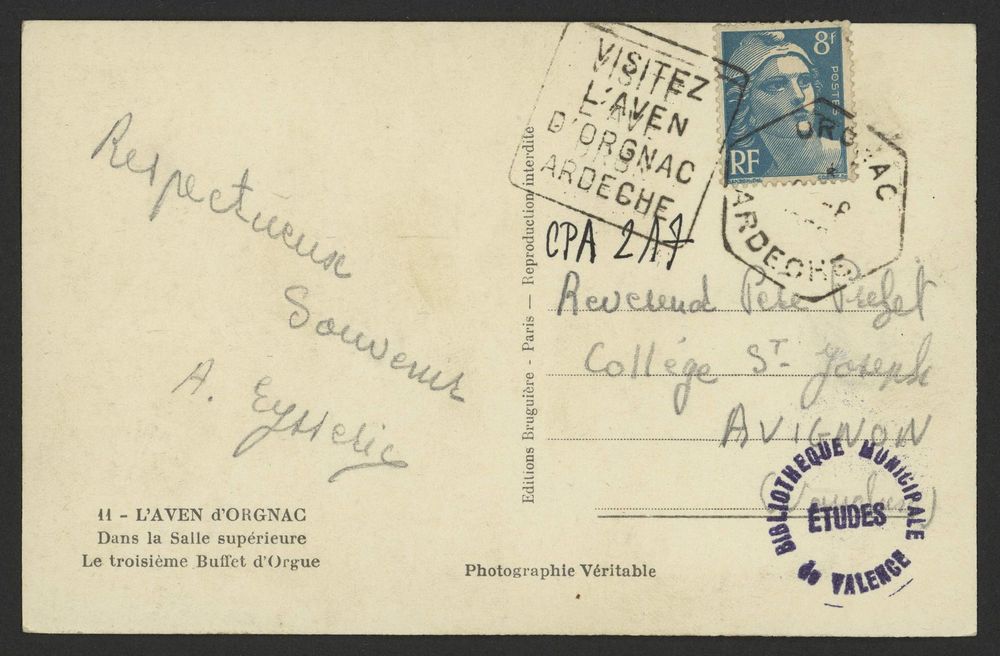 VISITEZ
L'AVEN
D'ORGNAC
ARDECHE
8f
POSTES
RF
ORGNAC
ARDECHE
CPA 217
Respectueux
Souvenir
A.
Editions Bruguière - Paris — Reproduction interdite
Reverend Père
Collège St Joseph
AVIGNON
(Vaucluse)
BIBLIOTHEQUE MUNICIPALE
ÉTUDES
de VALENCE
11 - L'AVEN d'ORGNAC
Dans la Salle supérieure
Le troisième Buffet d'Orgue
Photographie Véritable